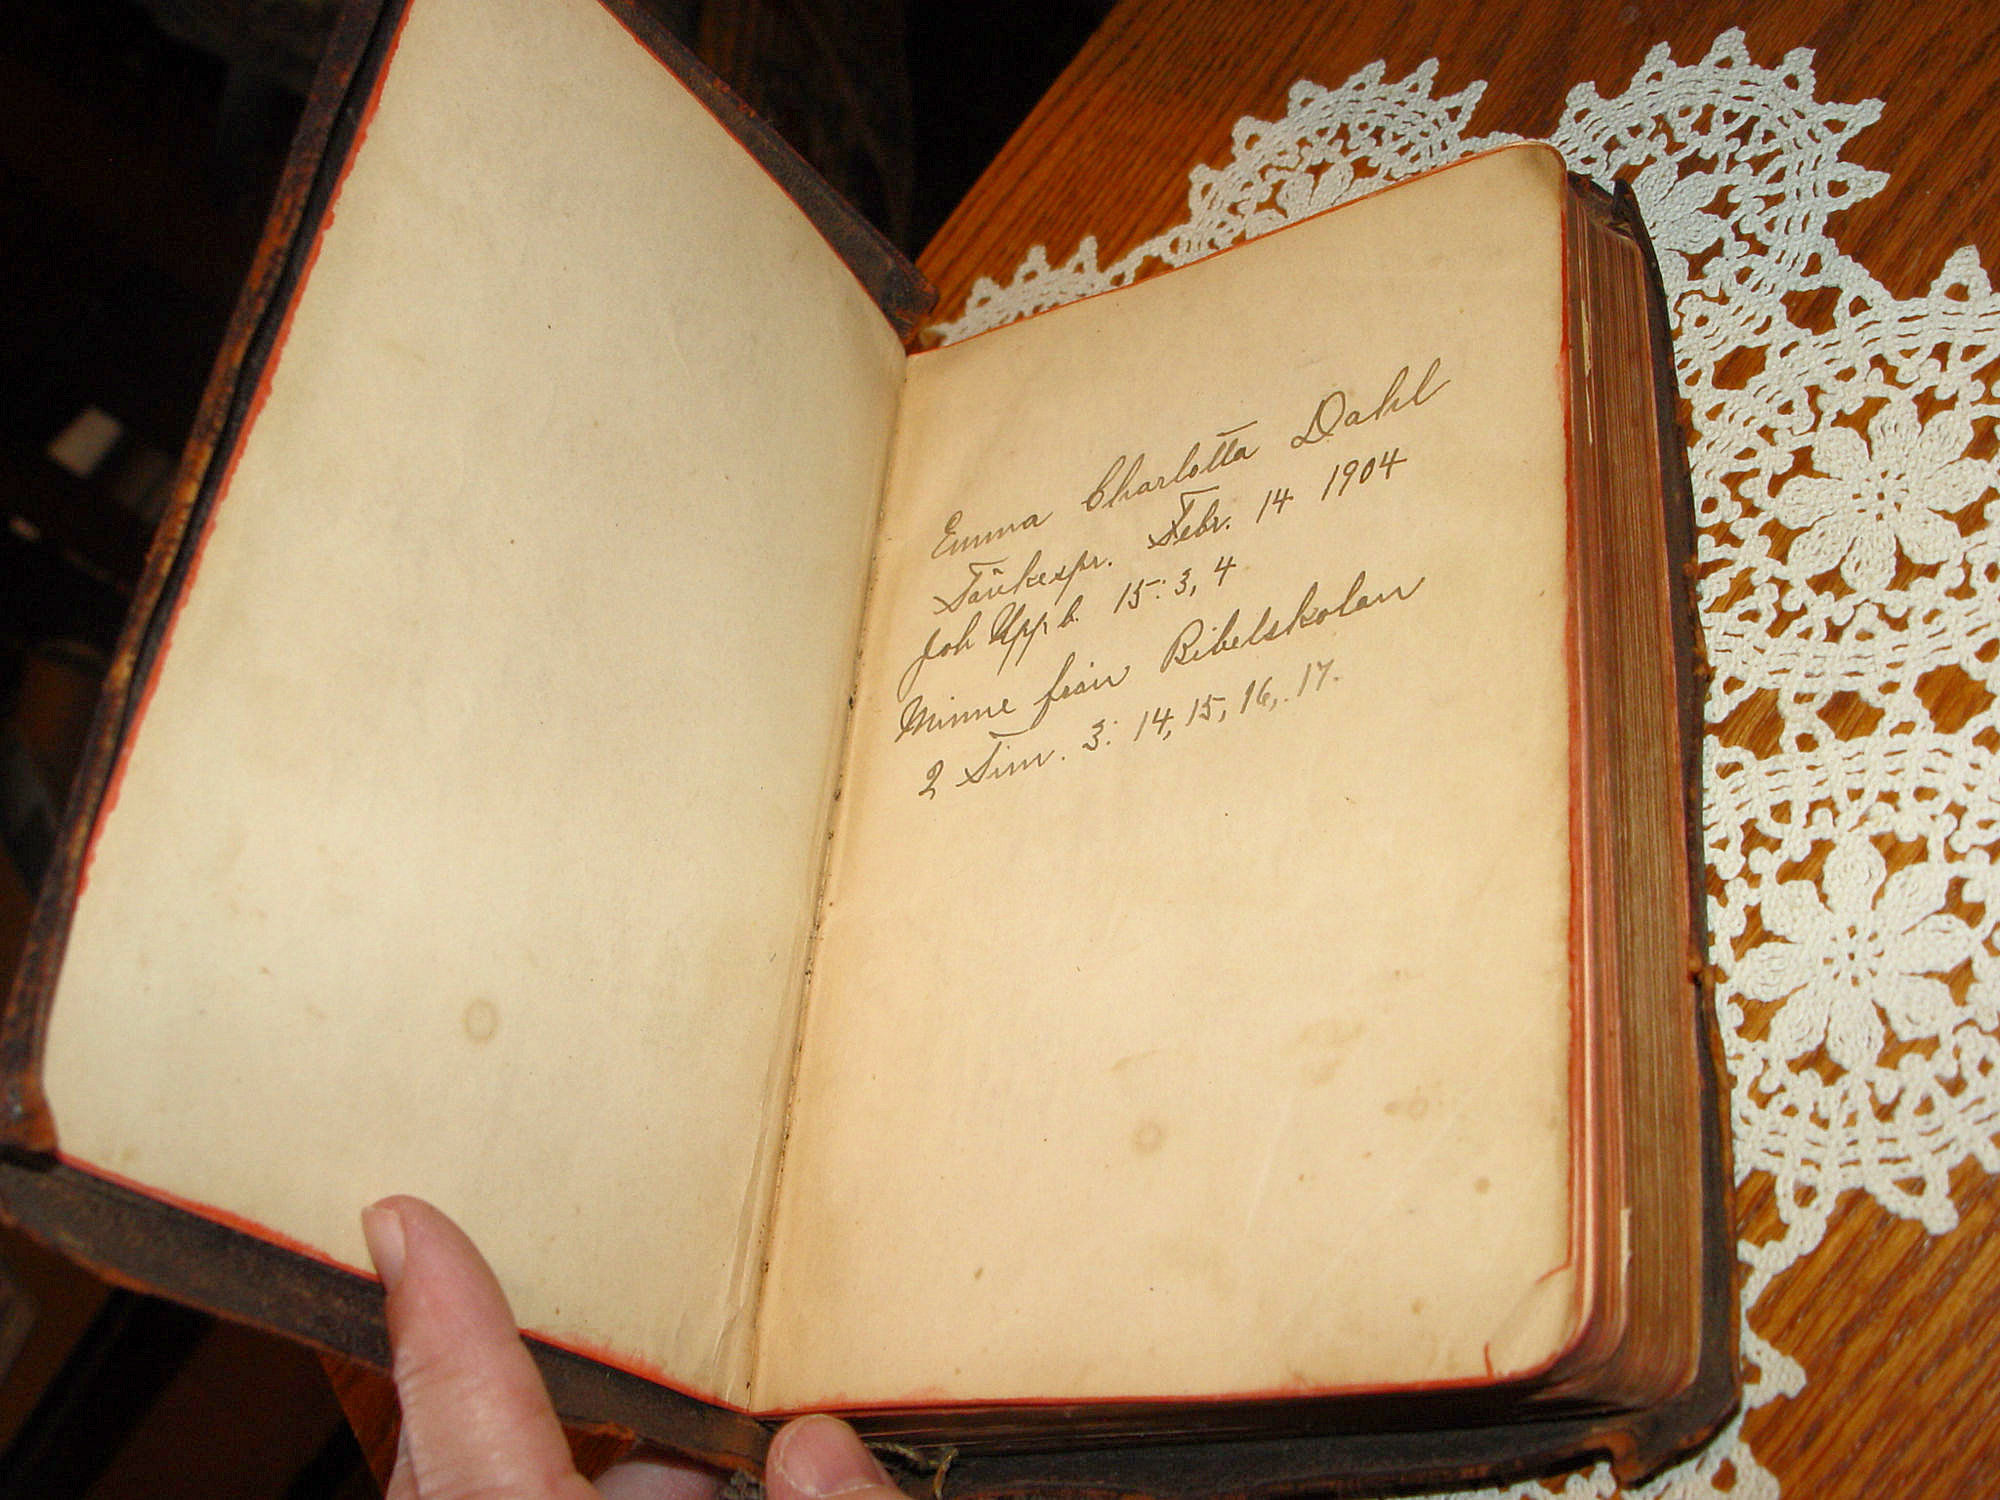 Emma Charlotta Dahl
Tänkespr. Febr. 14 1904
Joh Uppb. 15: 3, 4
Minne från Bibelskolan
2 Tim. 3: 14, 15, 16, 17.